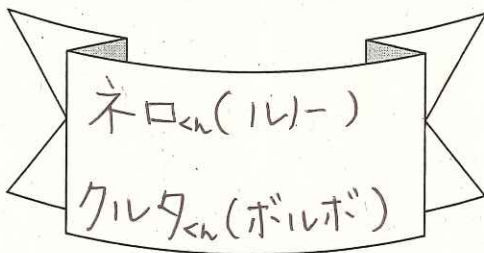 ネロくん(ルノー)
クルタくん(ボルボ)